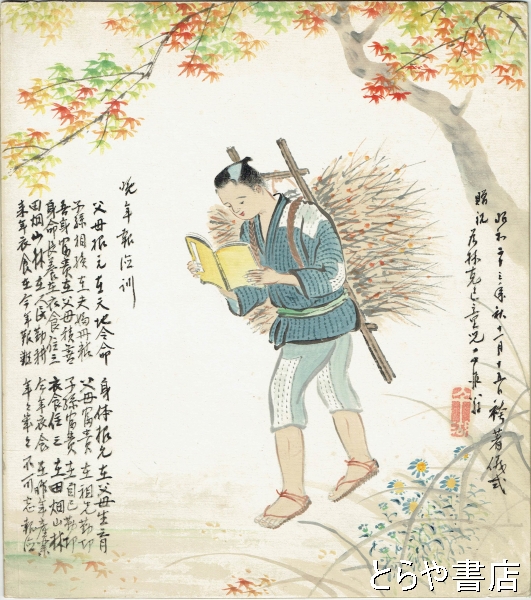 昭和十三年秋十一月十五日袴著儀式
贈祝 若林克己童児
晩年報徳訓
父母根元在天地令命
身体根元在父母生育
子孫相続在夫婦丹精
父母富貴在祖先勤功
吾身富貴在父母積善
子孫富貴在自己勤功
身命長養在衣食住三
衣食住三在田畑山林
田畑山林在人民勤耕
今年衣食在昨年産業
来年衣食在今年艱難
年々歳々不可忘報徳
とらや書店